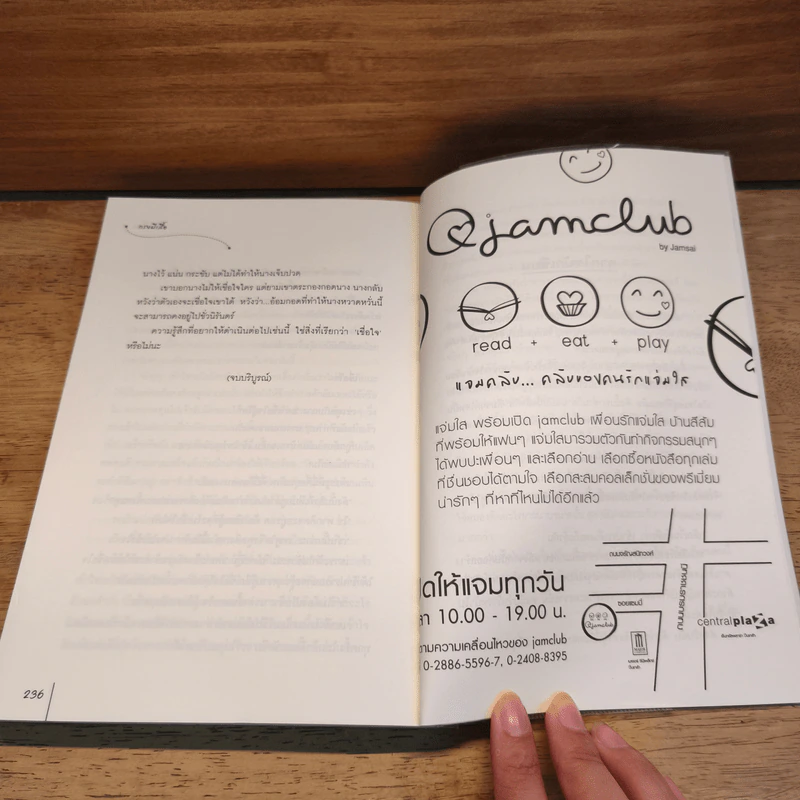 นางไว้ แน่น กระชับ แต่ไม่ได้ทำให้นางเจ็บปวด
เขาบอกนางไม่ให้เชื่อใจใคร แต่ยามเขาตระกองกอดนาง นางกลับ
หวังว่าตัวเองจะเชื่อใจเขาได้ หวังว่า...อ้อมกอดที่ทำให้นางหวาดหวั่นนี้
จะสามารถคงอยู่ไปชั่วนิรันดร์
ความรู้สึกที่อยากให้ดำเนินต่อไปเช่นนี้ ใช่สิ่งที่เรียกว่า 'เชื่อใจ'
หรือไม่นะ
(จบบริบูรณ์)
236
@jamclub
by Jamsai
read + eat + play
แจมคลับ... คลับของคนรักแจ่มใส
แจ่มใส พร้อมเปิด jamclub เพื่อนรักแจ่มใส บ้านสีส้ม
ที่พร้อมให้แฟนๆ แจ่มใสมารวมตัวกันทำกิจกรรมสนุกๆ
ได้พบปะเพื่อนๆ และเลือกอ่าน เลือกซื้อหนังสือทุกเล่ม
ที่ชื่นชอบได้ตามใจ เลือกสะสมคอลเล็กชั่นของพรีเมี่ยม
น่ารักๆ ที่หาที่ไหนไม่ได้อีกแล้ว
ถนนจรัญสนิทวงศ์
ดให้แจมทุกวัน
10.00 - 19.00 น.
ามความเคลื่อนไหวของ jamclub
0-2886-5596-7, 0-2408-8395
ซอยแซมมี่
@jamclub
centralplaza